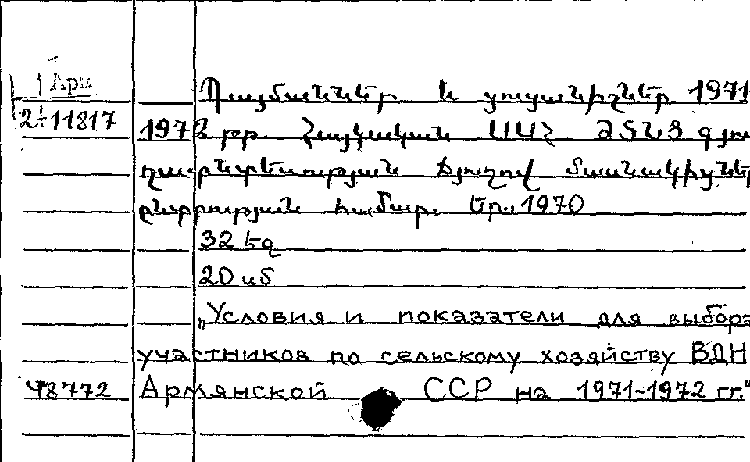 Арм
2՜11817
Պայմաններ և ցուցանիշներ 1971
1972 թթ. Հայկական ՍՍՀ ԺՏՆՑ գյու
ղատնտեսության ճյուղով մասնակիցներ
ընտրության համար. Եր., 1970
32 էջ
20 սմ
„Условия и показатели для выбора
участников по сельскому хозяйству ВДН
48772 Армянской ССР на 1971-1972 гг."